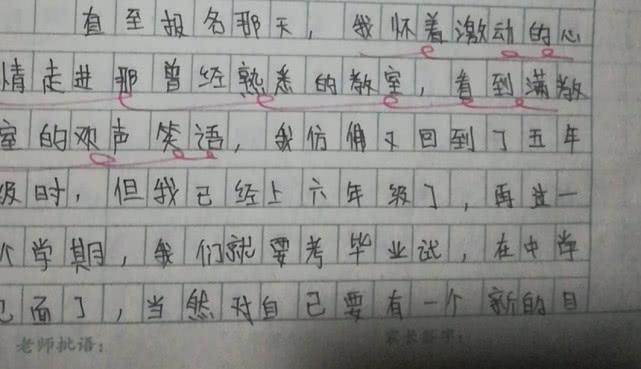 直至报名那天，我怀着激动的心
情走进那曾经熟悉的教室，看到满教
室的欢声笑语，我仿佛又回到了五年
级时，但我已经上六年级了，再过一
个学期，我们就要考毕业试，在中学
见面了，当然对自己要有一个新的目
老师批语： 家长签字：